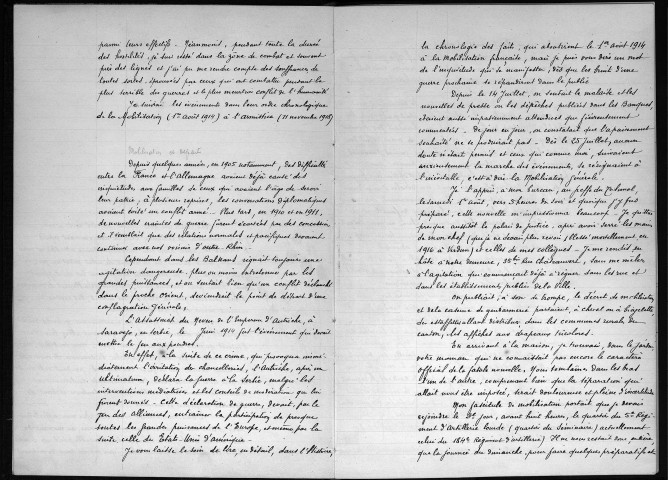 parmi leurs effectifs. Néanmoins, pendant toute la durée
des hostilités, je suis resté dans la zône de combat et souvent
près des lignes et j'ai pu me rendre compte des souffrances de
toutes sortes, éprouvées par ceux qui ont combattu pendant la
plus terrible des guerres et le plus meurtrier conflit de l'humanité
Je suivrai les événements dans leur ordre chronologique
de la Mobilisation (1er août 1914) à l'armistice (11 novembre 1918)
Mobilisation et départ
Depuis quelques années, en 1905 notamment, des difficultés
entre la France et l'Allemagne avaient déjà causé des
inquiétudes aux familles de ceux qui avaient l'âge de servir
leur patrie, à plusieurs reprises, les conversations diplomatiques
avaient évité un conflit armé. Plus tard, en 1910 et en 1911,
de nouvelles craintes de guerre furent écartées par des concessions
et il semblait que des relations normales et pacifiques devaient
continuer avec nos voisins d'outre Rhin.
Cependant dans les Balkans régnait toujours une
agitation dangereuse, plus ou moins entretenue par les
grandes puissances, et on sentait bien qu'un conflit déclanché
dans le proche orient, deviendrait le point de départ d'une
conflagration Générale.
L'assassinat du neveu de l'Empereur d'Autriche, à
Sarajevo, en Serbie, le Juin 1914 fut l'événement qui devait
mettre le feu aux poudres.
En effet, à la suite de ce crime, qui provoqua immé-
diatement l'agitation des chancelleries, l'Autriche, après un
ultimatum, déclara la guerre à la Serbie, malgré les
interventions médiatrices et les conseils de modération qui lui
furent donnés. Cette déclaration de guerre, devait, par le
jeu des alliances, entraîner la participation de presque
toutes les grandes puissances de l'Europe, et même par la
suite celle des Etats-Unis d'amérique.
Je vous laisse le soin de lire, en détail, dans l'Histoire,
la chronologie des faits, qui aboutirent le 1er août 1914
à la Mobilisation française, mais je puis vous dire un mot
de l'inquiétude qui se manifesta, dès que les bruits d'une
guerre prochaine se répandirent dans le public.
Depuis le 14 Juillet, on sentait le malaise et les
nouvelles de presse ou les dépêches publiées dans les Banques,
étaient aussi impatiemment attendues que fiévreusement
commentées. De jour en jour, on constatait que l'apaisement
souhaité ne se produisait pas. Dès le 25 Juillet, aucun
doute n'était permis et ceux qui comme moi, suivaient
anxieusement la marche des événements, se résignaient à
l'inévitable, c'est à dire la Mobilisation Générale.
Je l'appris, à mon bureau, au greffe du Tribunal,
le samedi 1er août, vers 5 heures du soir et quoique j'y fus
préparé, cette nouvelle m'impressionna beaucoup. Je quittai
presque aussitôt le palais de justice, après avoir serré les mains
de mon chef (que je ne devais plus revoir) (blessé mortellement en
1916 à Verdun) et celles de mes collègues. Je me rendis en
hâte à notre demeure, 35bis rue Chanoreuse, sans me mêler
à l'agitation qui commençait déjà à régner dans les rues et
dans les établissements publics de la Ville.
On publiait, à son de trompe, le décret de mobilisation,
et de la caserne de gendarmerie partaient, à cheval ou à bicyclette
des estafettes allant distribuer dans les communes rurales du
canton, les affiches aux drapeaux tricolores.
En arrivant à la maison, je trouvai, dans le jardin
votre maman qui ne connaissait pas encore le caractère
officiel de la fatale nouvelle. Nous tombâmes dans les bras
l'un de l'autre, comprenant bien que la séparation qui
allait nous être imposée, serait douloureuse et pleine d'incertitude
Mon fascicule de mobilisation portait que je devais
rejoindre le 3e jour, avant huit heures, le quartier du 5e Régi-
ment d'Artillerie Lourde (quartier du Séminaire) actuellement
celui du 184e Régiment d'artillerie) Il ne nous restait donc entière
que la journée du dimanche, pour faire quelques préparatifs et